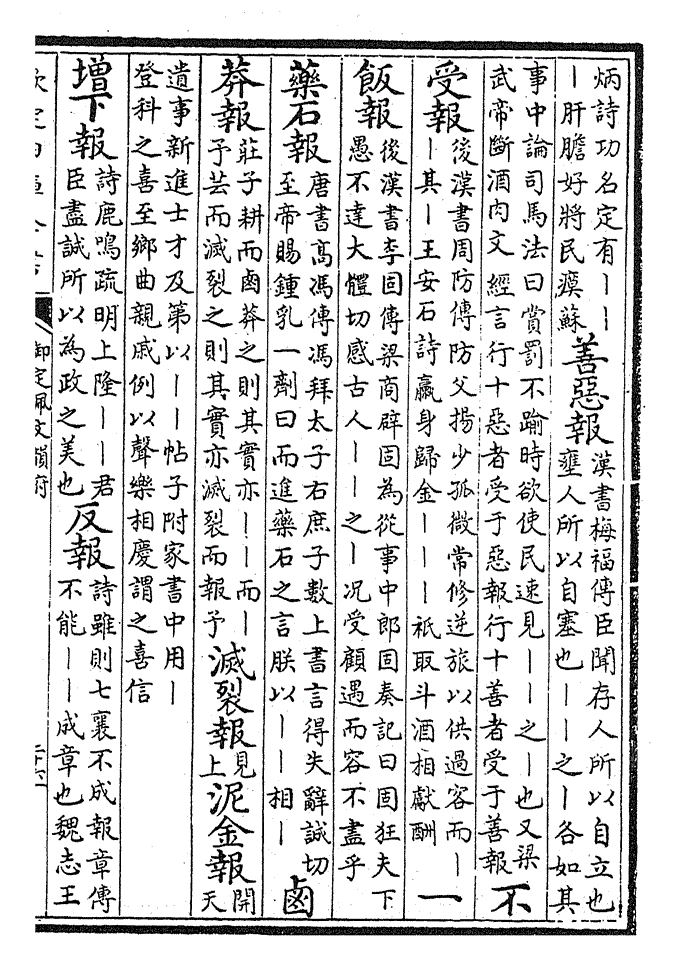 炳詩功名定有丨丨
丨肝膽好將民瘼蘇
善惡報
漢書梅福傳臣聞存人所以自立也
壅人所以自塞也丨丨之丨各如其
事中論司馬法曰賞罰不踰時欲使民速見丨丨之丨也又梁
武帝斷酒肉文經言行十惡者受于惡報行十善者受于善報
不
受報
後漢書周防傳防父揚少孤微常修逆旅以供過客而丨
丨其丨王安石詩羸身歸金丨丨丨祇取斗酒相獻酬
一
飯報
後漢書李固傳梁商辟固為從事中郎固奏記曰固狂夫下
愚不達大體切感古人丨丨之丨况受顧遇而容不盡乎
藥石報
唐書高馮傳馮拜太子右庶子數上書言得失辭誠切
至帝賜鍾乳一劑曰而進藥石之言朕以丨丨相丨
鹵
莽報
莊子耕而鹵莽之則其實亦丨丨而丨
予芸而滅裂之則其實亦滅裂而報予
滅裂報
見
上
泥金報
開
天
遺事新進士才及第以丨丨帖子附家書中用丨
登科之喜至鄉曲親戚例以聲樂相慶謂之喜信
增下報
詩鹿鳴疏明上隆丨丨君
臣盡誠所以為政之美也
反報
詩雖則七襄不成報章傳
不能丨丨成章也魏志王
欽定四庫全書
御定佩文韻府